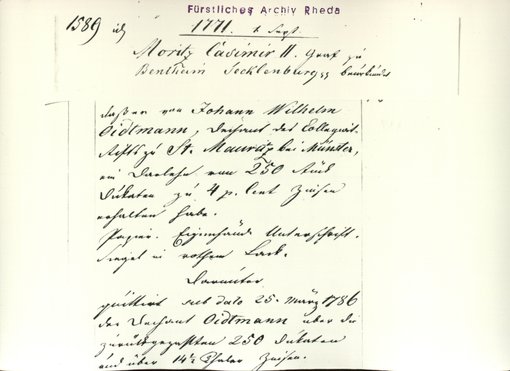 Fürstliches Archiv Rheda
1589
1771. 1. Sept.
Moritz Casimir II. Graf zu
Bentheim Tecklenburg beurkundet
daß er von Johann Wilhelm
Oidtmann, Dechant des Collegiat-
stifts zu St. Mauritz bei Münster,
ein Darlehn von 250 Stück
Dukaten zu 4 p. Cent Zinsen
erhalten habe.
Papier. Eigenhänd. Unterschrift.
Siegel in rothem Lack.
Darunter
quittirt sub dato 25. März 1786
der Dechant Oidtmann über die
zurückgezahlten 250 Dukaten
und über 14½ Thaler Zinsen.